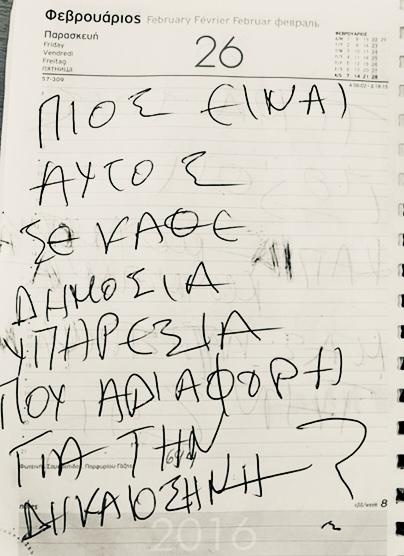 Φεβρουάριος February Février Februar февраль
Παρασκευή
Friday
Vendredi
Freitag
пятница
26
ΦΕΒΡΟΥΑΡΙΟΣ
57-309
ΠΙΟΣ ΕΙΝΑΙ
ΑΥΤΟΣ
ΣΕ ΚΑΘΕ
ΔΗΜΟΣΙΑ
ΥΠΗΡΕΣΙΑ
ΠΟΥ ΑΔΙΑΦΟΡΗ
ΓΙΑ ΤΗΝ
ΔΗΚΑΙΟΣΗΝΗ ?
notes
εβδ/week 8
2016